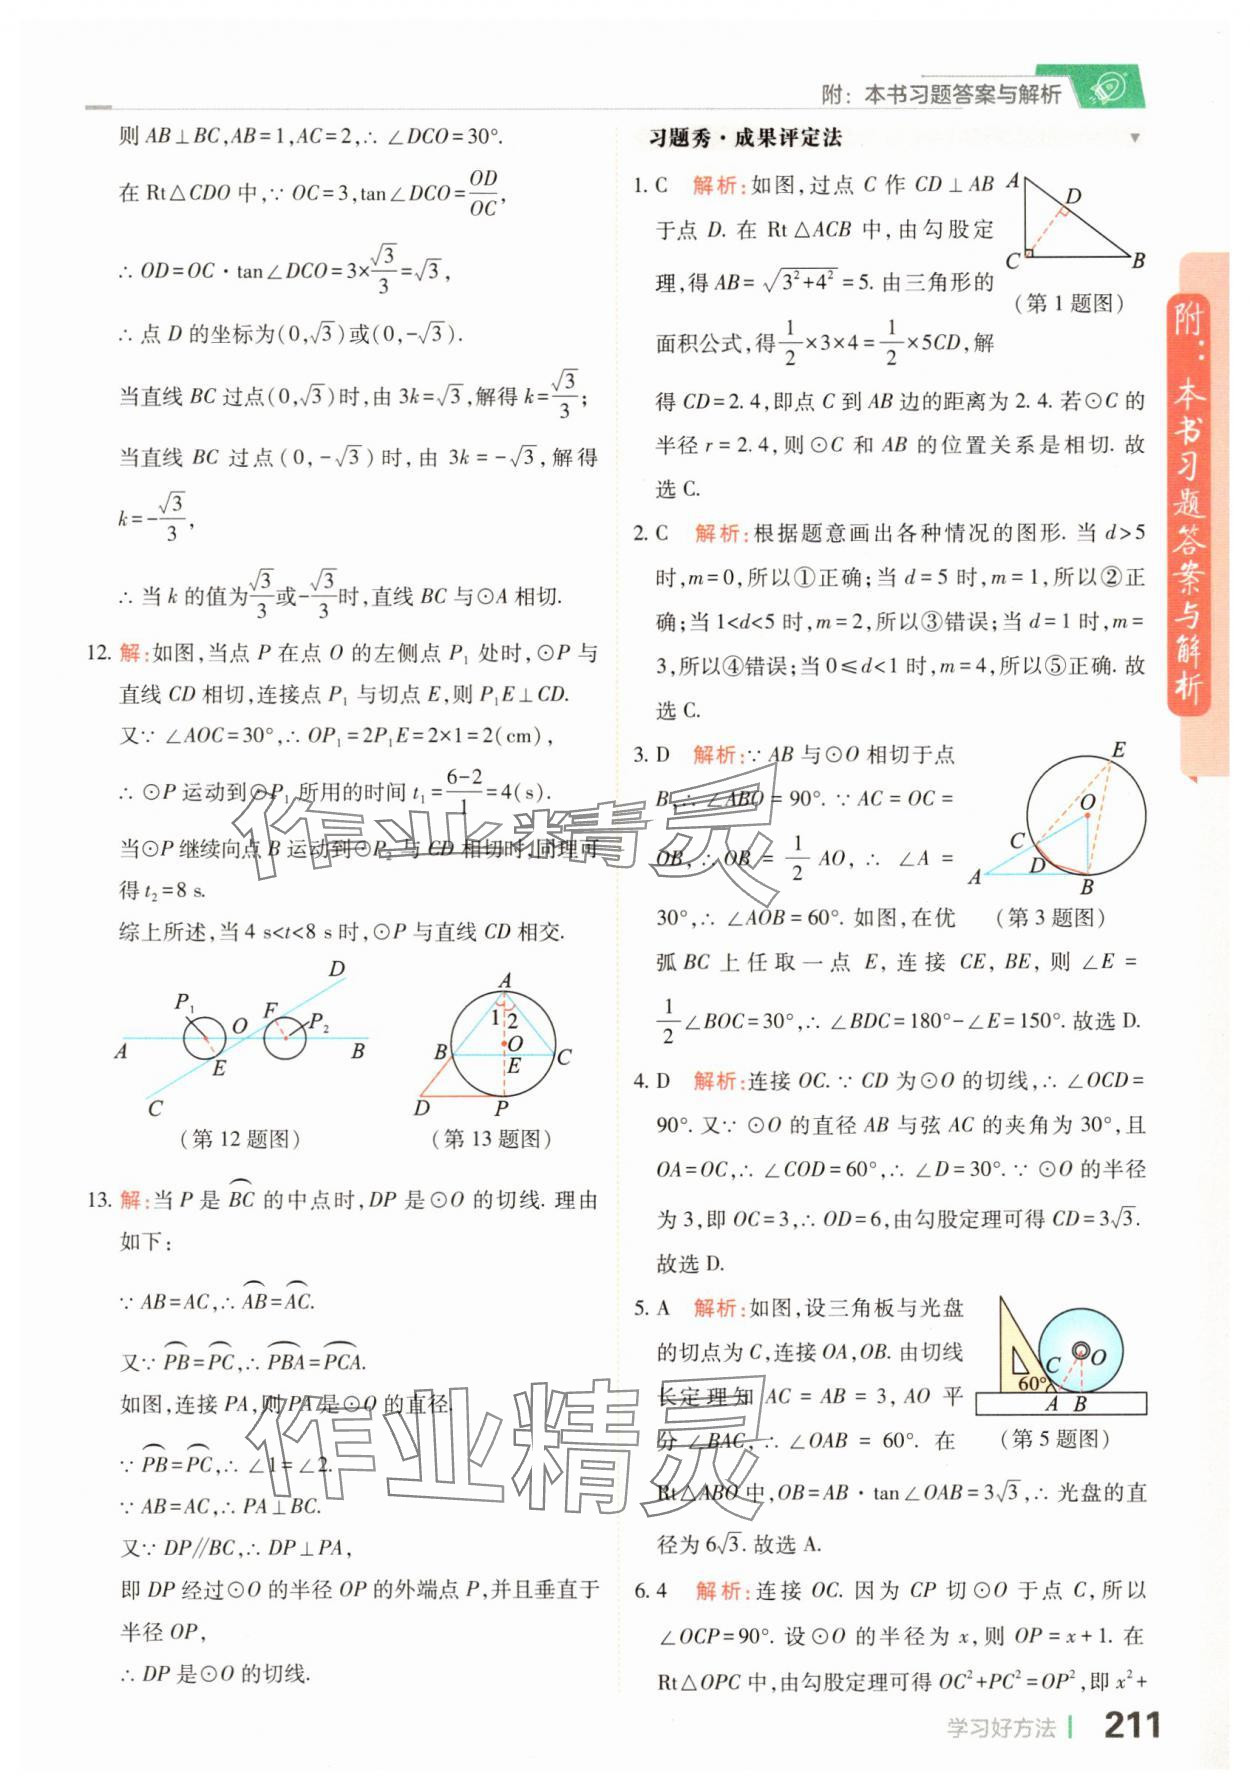 附：本书习题答案与解析
则 AB⊥BC,AB=1,AC=2,∴ ∠DCO=30°.
在 Rt△CDO 中,∵ OC=3,tan∠DCO=OD/OC,
∴ OD=OC·tan∠DCO=3×√3/3=√3,
∴ 点 D 的坐标为(0,√3)或(0,-√3).
当直线 BC 过点(0,√3)时,由 3k=√3,解得 k=√3/3;
当直线 BC 过点(0,-√3)时,由 3k=-√3,解得
k=-√3/3,
∴ 当 k 的值为√3/3或-√3/3时,直线 BC 与⊙A 相切.
12. 解:如图,当点 P 在点 O 的左侧点 P₁ 处时,⊙P 与
直线 CD 相切,连接点 P₁ 与切点 E,则 P₁E⊥CD.
又∵ ∠AOC=30°,∴ OP₁=2P₁E=2×1=2(cm),
∴ ⊙P 运动到⊙P₁ 所用的时间 t₁=(6-2)/1=4(s).
当⊙P 继续向点 B 运动到⊙P₂ 与 CD 相切时,同理可
得 t₂=8 s.
综上所述,当 4 s<t<8 s 时,⊙P 与直线 CD 相交.
D
P₁
F
O
P₂
A
B
E
C
(第 12 题图)
A
1 2
O
B
C
E
D
P
(第 13 题图)
13. 解:当 P 是 B͡C 的中点时,DP 是⊙O 的切线. 理由
如下:
∵ AB=AC,∴ A͡B=A͡C.
又∵ P͡B=P͡C,∴ P͡BA=P͡CA.
如图,连接 PA,则 PA 是⊙O 的直径.
∵ P͡B=P͡C,∴ ∠1=∠2.
∵ AB=AC,∴ PA⊥BC.
又∵ DP∥BC,∴ DP⊥PA,
即 DP 经过⊙O 的半径 OP 的外端点 P,并且垂直于
半径 OP,
∴ DP 是⊙O 的切线.
习题秀·成果评定法
1. C 解析:如图,过点 C 作 CD⊥AB
于点 D. 在 Rt△ACB 中,由勾股定
理,得 AB=√(3²+4²)=5. 由三角形的
面积公式,得1/2×3×4=1/2×5CD,解
得 CD=2.4,即点 C 到 AB 边的距离为 2.4. 若⊙C 的
半径 r=2.4,则⊙C 和 AB 的位置关系是相切. 故
选 C.
A
D
C
B
(第 1 题图)
2. C 解析:根据题意画出各种情况的图形. 当 d>5
时,m=0,所以①正确;当 d=5 时,m=1,所以②正
确;当 1<d<5 时,m=2,所以③错误;当 d=1 时,m=
3,所以④错误;当 0≤d<1 时,m=4,所以⑤正确. 故
选 C.
3. D 解析:∵ AB 与⊙O 相切于点
B,∴ ∠ABO=90°. ∵ AC=OC=
OB,∴ OB=1/2AO,∴ ∠A=
30°,∴ ∠AOB=60°. 如图,在优
弧 BC 上任取一点 E,连接 CE,BE,则 ∠E=
1/2∠BOC=30°,∴ ∠BDC=180°-∠E=150°. 故选 D.
E
O
C
D
A
B
(第 3 题图)
4. D 解析:连接 OC. ∵ CD 为⊙O 的切线,∴ ∠OCD=
90°. 又∵ ⊙O 的直径 AB 与弦 AC 的夹角为 30°,且
OA=OC,∴ ∠COD=60°,∴ ∠D=30°. ∵ ⊙O 的半径
为 3,即 OC=3,∴ OD=6,由勾股定理可得 CD=3√3.
故选 D.
5. A 解析:如图,设三角板与光盘
的切点为 C,连接 OA,OB. 由切线
长定理知 AC=AB=3,AO 平
分∠BAC,∴ ∠OAB=60°. 在
Rt△ABO 中,OB=AB·tan∠OAB=3√3,∴ 光盘的直
径为 6√3. 故选 A.
C
O
60°
A B
(第 5 题图)
6. 4 解析:连接 OC. 因为 CP 切⊙O 于点 C,所以
∠OCP=90°. 设⊙O 的半径为 x,则 OP=x+1. 在
Rt△OPC 中,由勾股定理可得 OC²+PC²=OP²,即 x²+
附：本书习题答案与解析
作业精灵
作业精灵
学习好方法 211